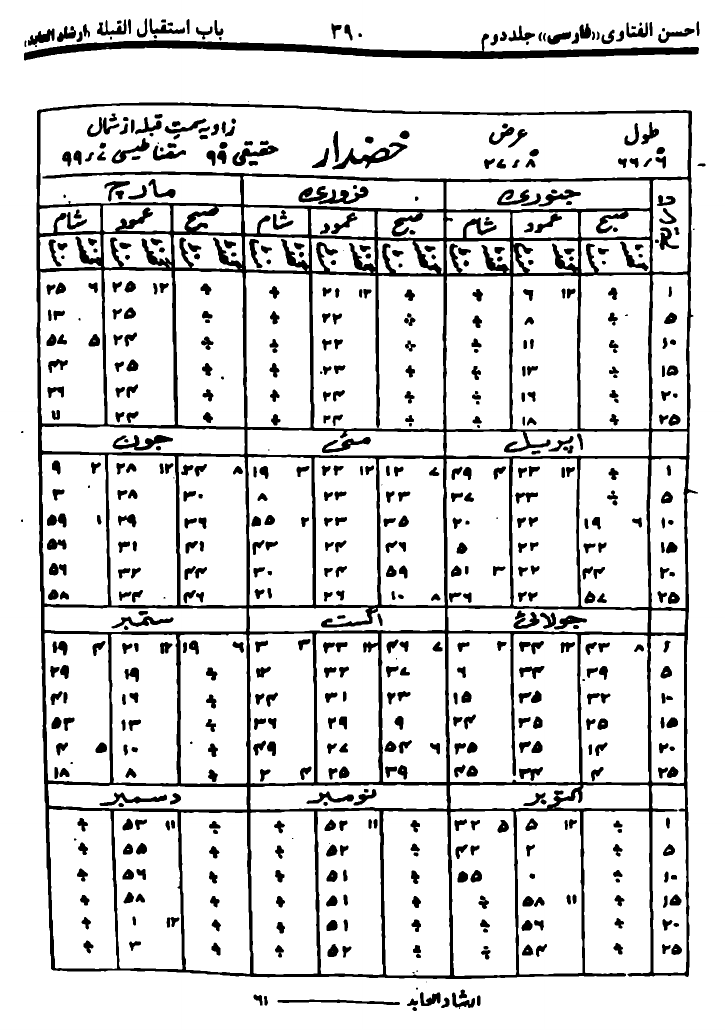 احسن الفتاوی «فارسی» جلد دوم ۳۹۰ باب استقبال القبلة (ارشاد العابد)
طول عرض خضدار زاویہ سمت قبلہ از شمال
۶۶٫۶ ۲۷٫۸ حقیقی ۹۹ مقناطیسی
تاریخ جنوری فروری مارچ
صبح عمود شام صبح عمود شام صبح عمود شام
گھنٹہ منٹ گھنٹہ منٹ گھنٹہ منٹ گھنٹہ منٹ گھنٹہ منٹ گھنٹہ منٹ گھنٹہ منٹ گھنٹہ منٹ گھنٹہ منٹ
۱ ÷ ۱۲ ۶ ÷ ÷ ۱۲ ۲۱ ÷ ÷ ۱۲ ۲۵ ۶ ۲۵
۵ ÷ ۸ ÷ ÷ ۲۲ ÷ ÷ ۲۵ ۱۳
۱۰ ÷ ۱۱ ÷ ÷ ۲۲ ÷ ÷ ۲۴ ۵ ۵۷
۱۵ ÷ ۱۳ ÷ ÷ ۲۳ ÷ ÷ ۲۵ ۴۲
۲۰ ÷ ۱۶ ÷ ÷ ۲۴ ÷ ÷ ۲۴ ۲۶
۲۵ ÷ ۱۸ ÷ ÷ ۲۴ ÷ ÷ ۲۴ ۱۱
اپریل مئی جون
۱ ÷ ۱۲ ۲۳ ۴ ۴۹ ۷ ۱۲ ۱۲ ۲۳ ۳ ۱۹ ۸ ۲۴ ۱۲ ۲۸ ۲ ۹
۵ ÷ ۲۳ ۳۷ ۲۳ ۲۳ ۸ ۳۰ ۲۸ ۳
۱۰ ۶ ۱۹ ۲۲ ۲۰ ۳۵ ۲۳ ۲ ۵۵ ۳۶ ۲۹ ۱ ۵۹
۱۵ ۳۲ ۲۲ ۵ ۴۶ ۲۴ ۴۳ ۴۱ ۳۱ ۵۶
۲۰ ۴۴ ۲۲ ۳ ۵۱ ۵۹ ۲۴ ۳۰ ۴۴ ۳۲ ۵۶
۲۵ ۵۷ ۲۲ ۳۶ ۸ ۱۰ ۲۶ ۲۱ ۴۶ ۳۴ ۵۸
جولائی اگست ستمبر
۱ ۸ ۴۳ ۱۲ ۳۴ ۲ ۳ ۷ ۴۶ ۱۲ ۳۳ ۳ ۳ ۶ ۱۹ ۱۲ ۲۱ ۴ ۱۹
۵ ۳۹ ۳۴ ۶ ۳۷ ۳۲ ۱۲ ÷ ۱۹ ۲۹
۱۰ ۳۲ ۳۵ ۱۵ ۲۳ ۳۱ ۲۴ ÷ ۱۶ ۴۱
۱۵ ۲۵ ۳۵ ۲۴ ۹ ۲۹ ۳۶ ÷ ۱۳ ۵۳
۲۰ ۱۴ ۳۵ ۳۵ ۶ ۵۴ ۲۷ ۴۹ ÷ ۱۰ ۵ ۴
۲۵ ۴ ۳۴ ۴۵ ۳۹ ۲۵ ۴ ۲ ÷ ۸ ۱۸
اکتوبر نومبر دسمبر
۱ ÷ ۱۲ ۵ ۵ ۳۲ ÷ ۱۱ ۵۲ ÷ ÷ ۱۱ ۵۳ ÷
۵ ÷ ۲ ۴۲ ÷ ۵۲ ÷ ÷ ۵۵ ÷
۱۰ ÷ ۰ ۵۵ ÷ ۵۱ ÷ ÷ ۵۶ ÷
۱۵ ÷ ۱۱ ۵۸ ÷ ÷ ۵۱ ÷ ÷ ۵۸ ÷
۲۰ ÷ ۵۶ ÷ ÷ ۵۱ ÷ ÷ ۱۲ ۱ ÷
۲۵ ÷ ۵۴ ÷ ÷ ۵۲ ÷ ÷ ۳ ÷
ارشاد العابد ۶۱